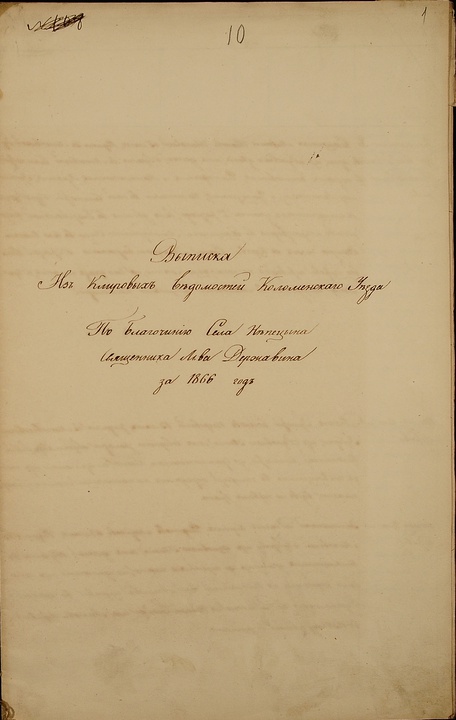 10
1
Выписка
Изъ Клировыхъ вѣдомостей Коломенскаго Уѣзда
По Благочинію Села Нѣпецына
Священника Льва Державина
за 1866 годъ